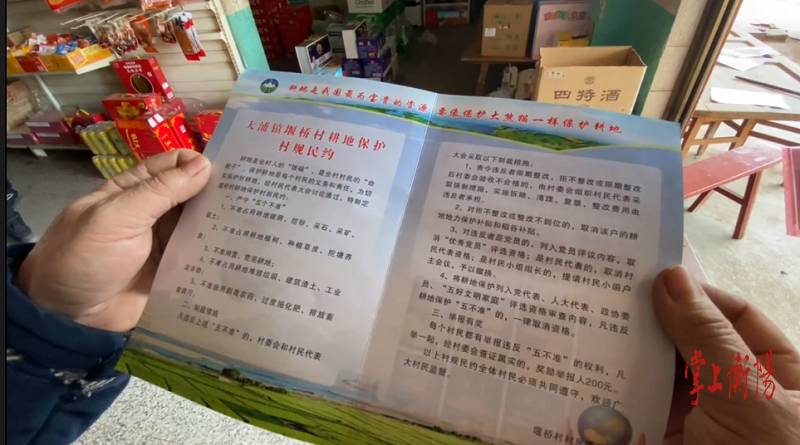 耕地是我国最为宝贵的资源 要像保护大熊猫一样保护耕地
大浦镇堰桥村耕地保护
村规民约
耕地是全村人的“饭碗”，是全村村民的“命
根子”。保护耕地是每个村民的义务和责任，为切
实保护好耕地，经村民代表大会讨论通过，特制定
堰桥村耕地保护村规民约。
一、严守“五个不准”
1、不准占用耕地建房、挖砂、采石、采矿、
取土；
2、不准占用耕地植树、种植草皮、挖塘养
鱼；
3、不准闲置、荒芜耕地；
4、不准占用耕地堆放垃圾、建筑渣土、工业
废弃物；
5、不准施用剧毒农药，过度施化肥、排放畜
禽粪污。
二、制裁措施
凡违反上述“五不准”的，村委会和村民代表
大会采取以下制裁措施：
1、责令违反者限期整改，拒不整改或限期整改
后村委会验收不合格的，由村委会组织村民代表采
取强制措施，实施拆除、清理、复垦，整改费用由
违反者承担。
2、对拒不整改或整改不到位的，取消该户的耕
地地力保护补贴和稻谷补贴。
3、对违反者是党员的，列入党员评议内容，取
消“优秀党员”评选资格；是村民代表的，取消村
民代表资格；是村民小组组长的，提请村民小组户
主会议，予以撤换。
4、将耕地保护列入党代表、人大代表、政协委
员、“五好文明家庭”评选资格审查内容，凡违反
耕地保护“五不准”的，一律取消资格。
三、举报有奖
每个村民都有举报违反“五不准”的权利，凡
举一起，经村委会查证属实的，奖励举报人200元。
以上村规民约全体村民必须共同遵守，欢迎广
大村民监督。
堰桥村村民
四特酒
掌上衡阳